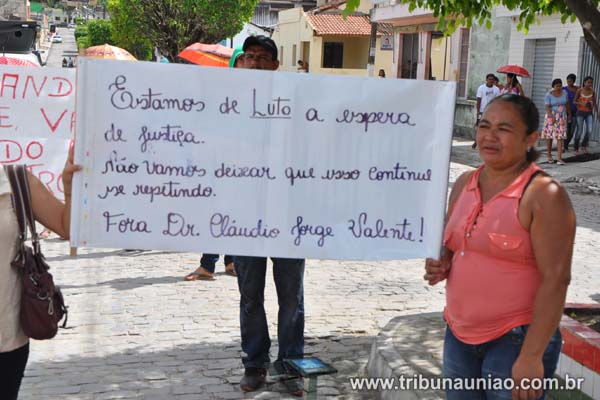 Estamos de Luto a espera
de justiça.
Não vamos deixar que isso continue
se repitindo.
Fora Dr. Cláudio Jorge Valente!
www.tribunauniao.com.br